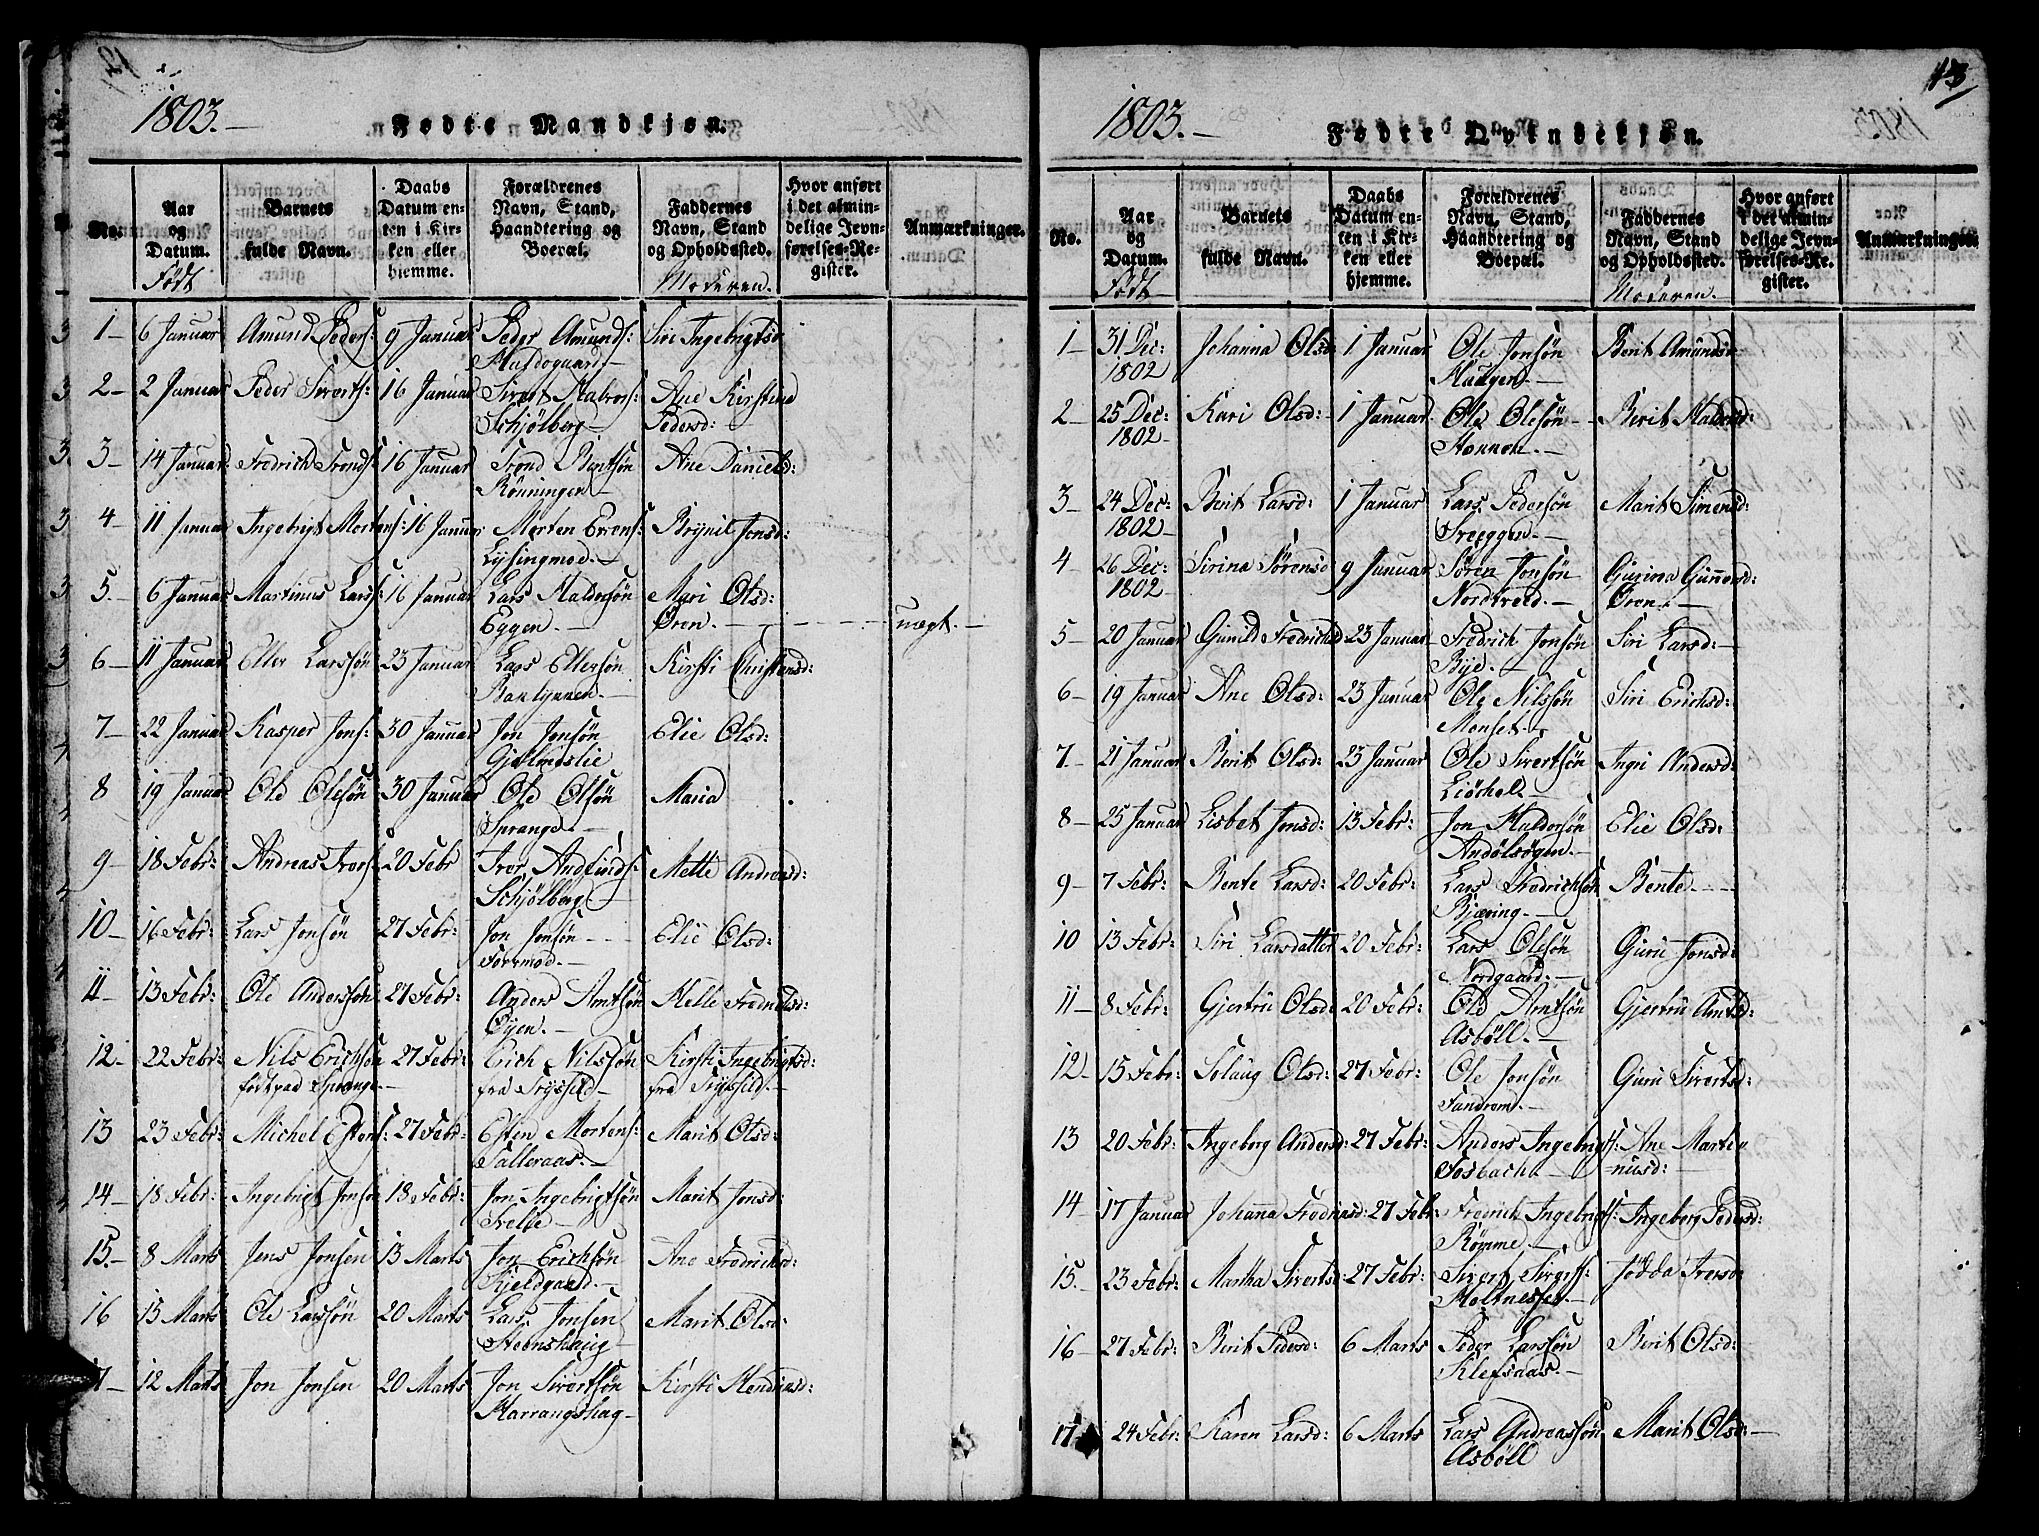 1803.—
Fødte Mandkjøn.
No. Aar og Datum. Født Barnets fulde Navn. Daabs Datum enten i Kirken eller hjemme. Forældrenes Navn, Stand, Haandtering og Boepæl. Faddernes Navn, Stand og Opholdssted. Moderen. Hvor anført i det almindelige Jevnførelses-Register. Anmærkninger.
1— 6 Januar Amund Peders: 9 Januar Peder Amunds: Siri Ingebrigtsd
Haldogaard—
2— 2 Januar Peder Siverts: 16 Januar Sivert Halvors: Ane Kirstina
Schjölberg— Pedersd:
3— 14 Januar Fredrich Tronds: 16 Januar Trond Bentsøn Ane Daniels:
Rönningen—
4— 11 Januar Ingebrigt Mortens: 16 Januar Morten Evens: Brynil Jonsd:
Lysingmoe.—
5.— 6 Januar Martinus Lars: 16 Januar Lars Haldorsøn Mari Olsd:
Eggen.— Øren.— uægt.—
6— 11 Januar Eller Larssøn 23 Januar Lars Ellersøn Kirsti Christensd:
7— 22 Januar Kasper Jons: 30 Januar Jon Jonsøn Elie Olsd:
Gjølmeslie
8 19 Januar Ole Olesøn 30 Januar Ole Olsøn Maria
Sprange.—
9— 18 Febr: Andreas Ivers: 20 Febr Iver Andfinds: Mette Andreasd:
Schjölberg—
10— 16 Febr: Lars Jonsøn 27 Febr: Jon Jonsøn--- Elie Olsd:
Forrmoe.—
11— 13 Febr: Ole Anderssøn 27 Febr: Anders Arntsøn Helle Fredrichsd:
Øyen.—
12.— 22 Febr: Nils Erichsøn 27 Febr: Erich Nilssøn Kirsti Ingebrigtsd:
født paa Sprange.— fra Trÿssild— fra Trÿssild.—
13 23 Febr: Michel Estens: 27 Febr: Esten Mortens: Marit Olsd:
Talleraas.—
14— 18 Febr: Ingebrigt Jonsøn 18 Febr: Jon Ingebrigtsøn Marit Jonsd:
15.— 8 Marts Jens Jonsen 13 Marts Jon Erichsøn Ane Fredrichsd:
Kjeldgaard.—
16 15 Marts Ole Larssøn 20 Marts Lars Jonsen Marit Olsd:
Steenshaug—
17— 12 Marts Jon Jonsen 20 Marts Jon Sivertsøn Kirsti Hendricsd:
Harrangshag—
13
1803.—
Fødte Qvindekjøn.
No. Aar og Datum. Født Barnets fulde Navn. Daabs Datum enten i Kirken eller hjemme. Forældrenes Navn, Stand, Haandtering og Boepæl. Faddernes Navn, Stand og Opholdssted. Moderen. Hvor anført i det almindelige Jevnførelses-Register. Anmærkninger.
1— 31 Dec: Johanna Olsd 1 Januar Ole Jonsøn Berit Amundsd
1802 Haugen.—
2— 25 Dec: Kari Olsd: 1 Januar Ole Olesøn— Berit Haldorsd:
1802— Honnen.—
3— 24 Dec: Berit Larsd: 1 Januar Lars Pedersøn Marit Simensd:
1802—
4 26 Dec: Sirina Sörensd 9 Januar Sören Jonsøn Gurina Gunersd:
1802 Nordtveed.— Øren.—
5— 20 Januar Gunild Fredrichsd 23 Januar Fredrich Jonsøn Siri Larsd:—
Bye.—
6— 19 Januar Ane Olsd: 23 Januar Ole Nilssøn Siri Erichsd:
Monset.—
7.— 21 Januar Berit Olsd: 23 Januar Ole Sivertsøn Ingri Andersd:
Liöchel.—
8— 25 Januar Lisbet Jonsd: 13 Febr: Jon Haldorsøn Elie Olsd:
Andölsögen.—
9— 7 Febr: Bente Larsd: 20 Febr: Lars Fredrichsøn Bente----
Bjæring.—
10 13 Febr: Siri Larsdatter 20 Febr: Lars Olesøn Guru Jonsd:
Nordgaard.—
11— 8 Febr: Gjertru Olsd: 20 Febr: Ole Arntsøn Gjertru Arntsd:
Asböll.—
12) 15 Febr: Solaug Olsd: 27 Febr: Ole Jonsøn Guru Sivertsd:
Sandrom.—
13 20 Febr: Ingeborg Andersd: 27 Febr: Anders Ingebrigts: Ane Marti=
Fosbach.— =nusd:—
14— 17 Januar Johanna Fredricsd: 27 Febr: Fredrich Ingebrigts: Ingeborg Pedersd:
Römme.—
15. 23 Febr: Martha Sivertsd: 27 Febr: Sivert Siverts: Jödda Iversd
Holtnesset—
16— 27 Febr: Berit Pedersd: 6 Marts Peder Larssøn Berit Olsd:
Klefsaas.—
17 24 Febr: Karen Larsd: 6 Marts Lars Andreassøn Marit Olsd:—
Asböll